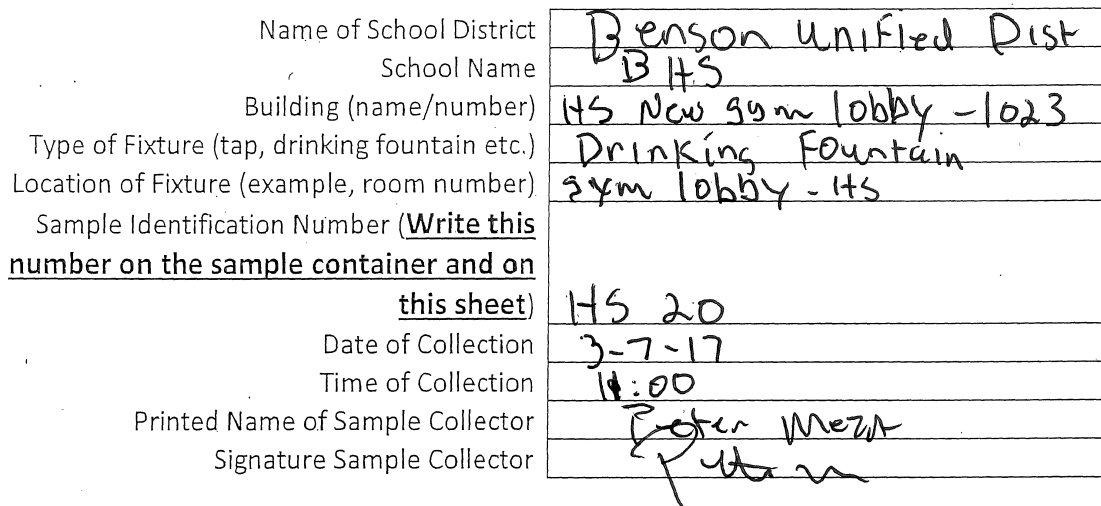 Name of School District Benson Unified Dist
School Name BHS
Building (name/number) HS New gym lobby - 1023
Type of Fixture (tap, drinking fountain etc.) Drinking Fountain
Location of Fixture (example, room number) gym lobby - HS
Sample Identification Number (Write this
number on the sample container and on
this sheet) HS 20
Date of Collection 3-7-17
Time of Collection 11:00
Printed Name of Sample Collector Peter Meza
Signature Sample Collector